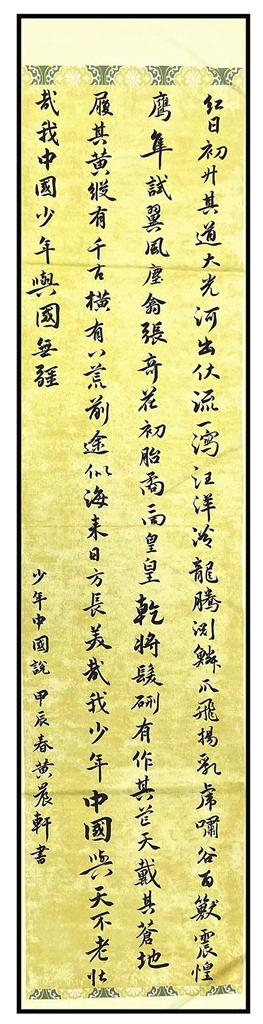 红日初升其道大光河出伏流一瀉汪洋冷龍騰渕鱗爪飛揚乳虎嘯谷百獸震惶
鷹隼試翼風塵翕張奇花初胎矞矞皇皇乾將髮硎有作其芒天戴其蒼地
履其黄縱有千古横有八荒前途似海来日方長美哉我少年中國與天不老壯
哉我中國少年與國無疆
少年中國説 甲辰春黄晨軒書